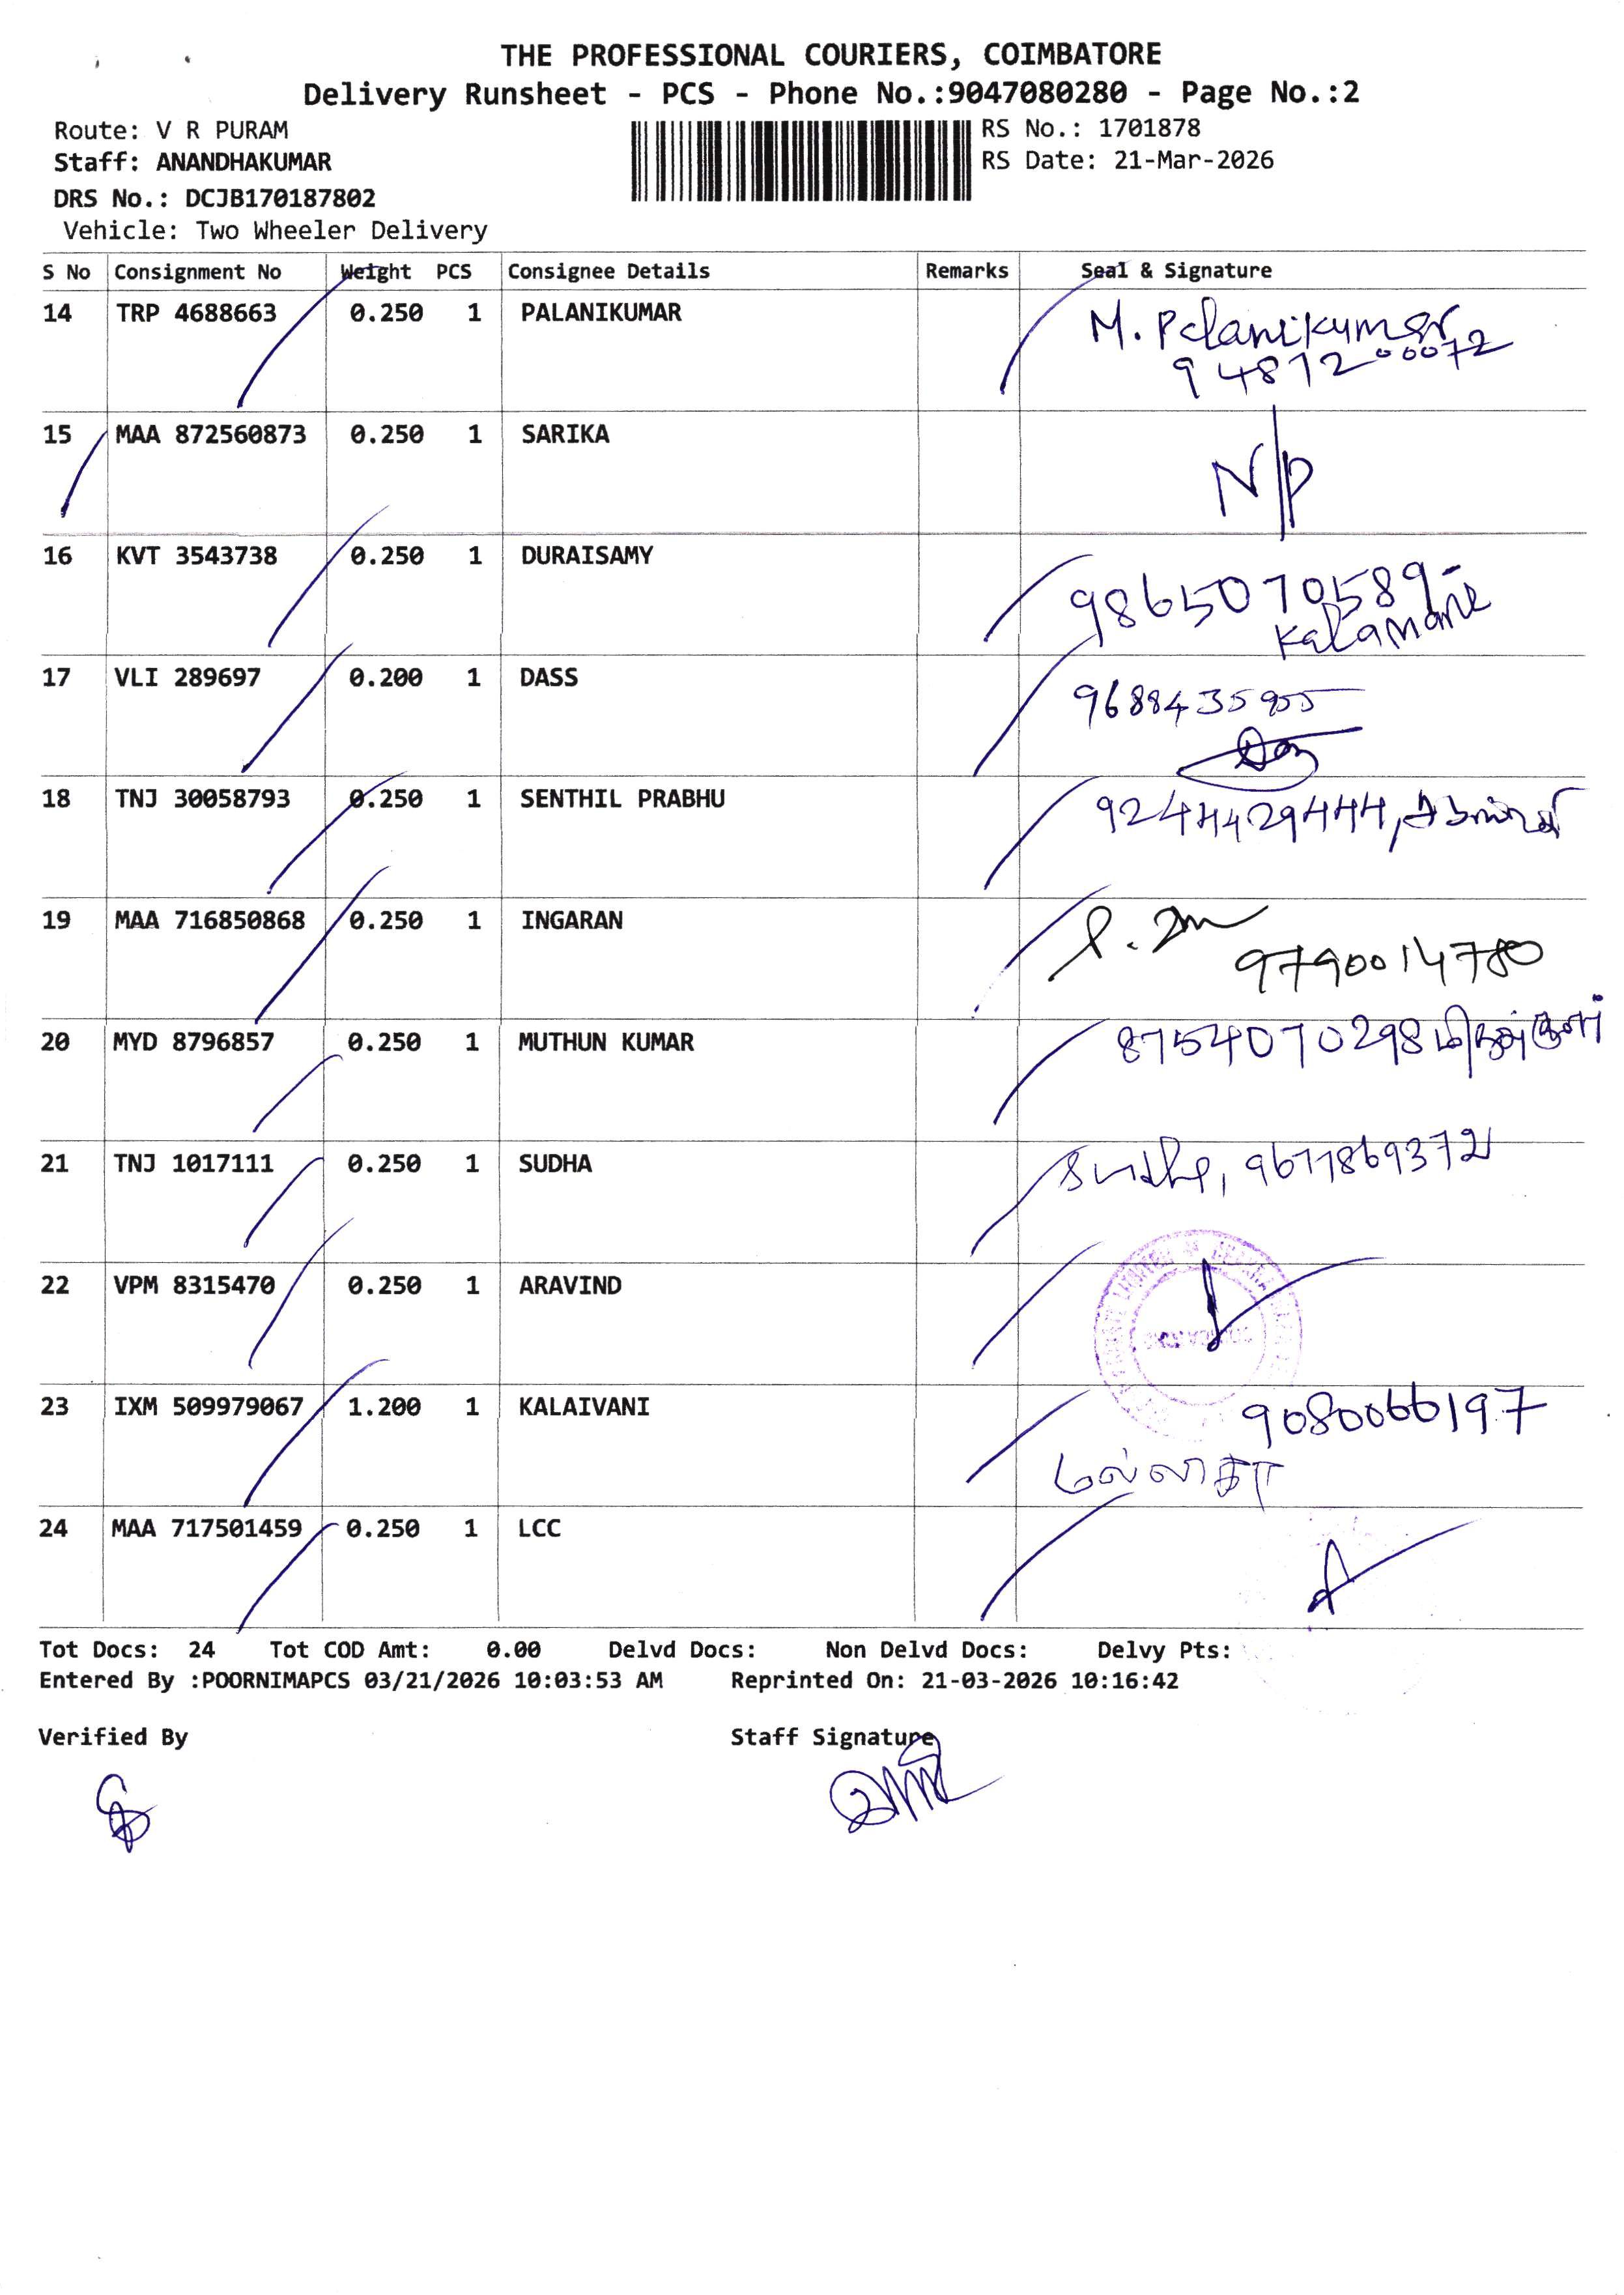 THE PROFESSIONAL COURIERS, COIMBATORE
Delivery Runsheet - PCS - Phone No.:9047080280 - Page No.:2
Route: V R PURAM
Staff: ANANDHAKUMAR
DRS No.: DCJB170187802
Vehicle: Two Wheeler Delivery
RS No.: 1701878
RS Date: 21-Mar-2026
S No Consignment No Weight PCS Consignee Details Remarks Seal & Signature
14 TRP 4688663 0.250 1 PALANIKUMAR M. Palanikumar
9487200072
15 MAA 872560873 0.250 1 SARIKA N/P
16 KVT 3543738 0.250 1 DURAISAMY 9865070589
Kalamani
17 VLI 289697 0.200 1 DASS 9688435955
18 TNJ 30058793 0.250 1 SENTHIL PRABHU 9244429444,
19 MAA 716850868 0.250 1 INGARAN
9790014780
20 MYD 8796857 0.250 1 MUTHUN KUMAR 8754070298
21 TNJ 1017111 0.250 1 SUDHA Sudha, 9677869372
22 VPM 8315470 0.250 1 ARAVIND
23 IXM 509979067 1.200 1 KALAIVANI 9080066197
மல்லிகா
24 MAA 717501459 0.250 1 LCC
Tot Docs: 24 Tot COD Amt: 0.00 Delvd Docs: Non Delvd Docs: Delvy Pts:
Entered By :POORNIMAPCS 03/21/2026 10:03:53 AM Reprinted On: 21-03-2026 10:16:42
Verified By Staff Signature